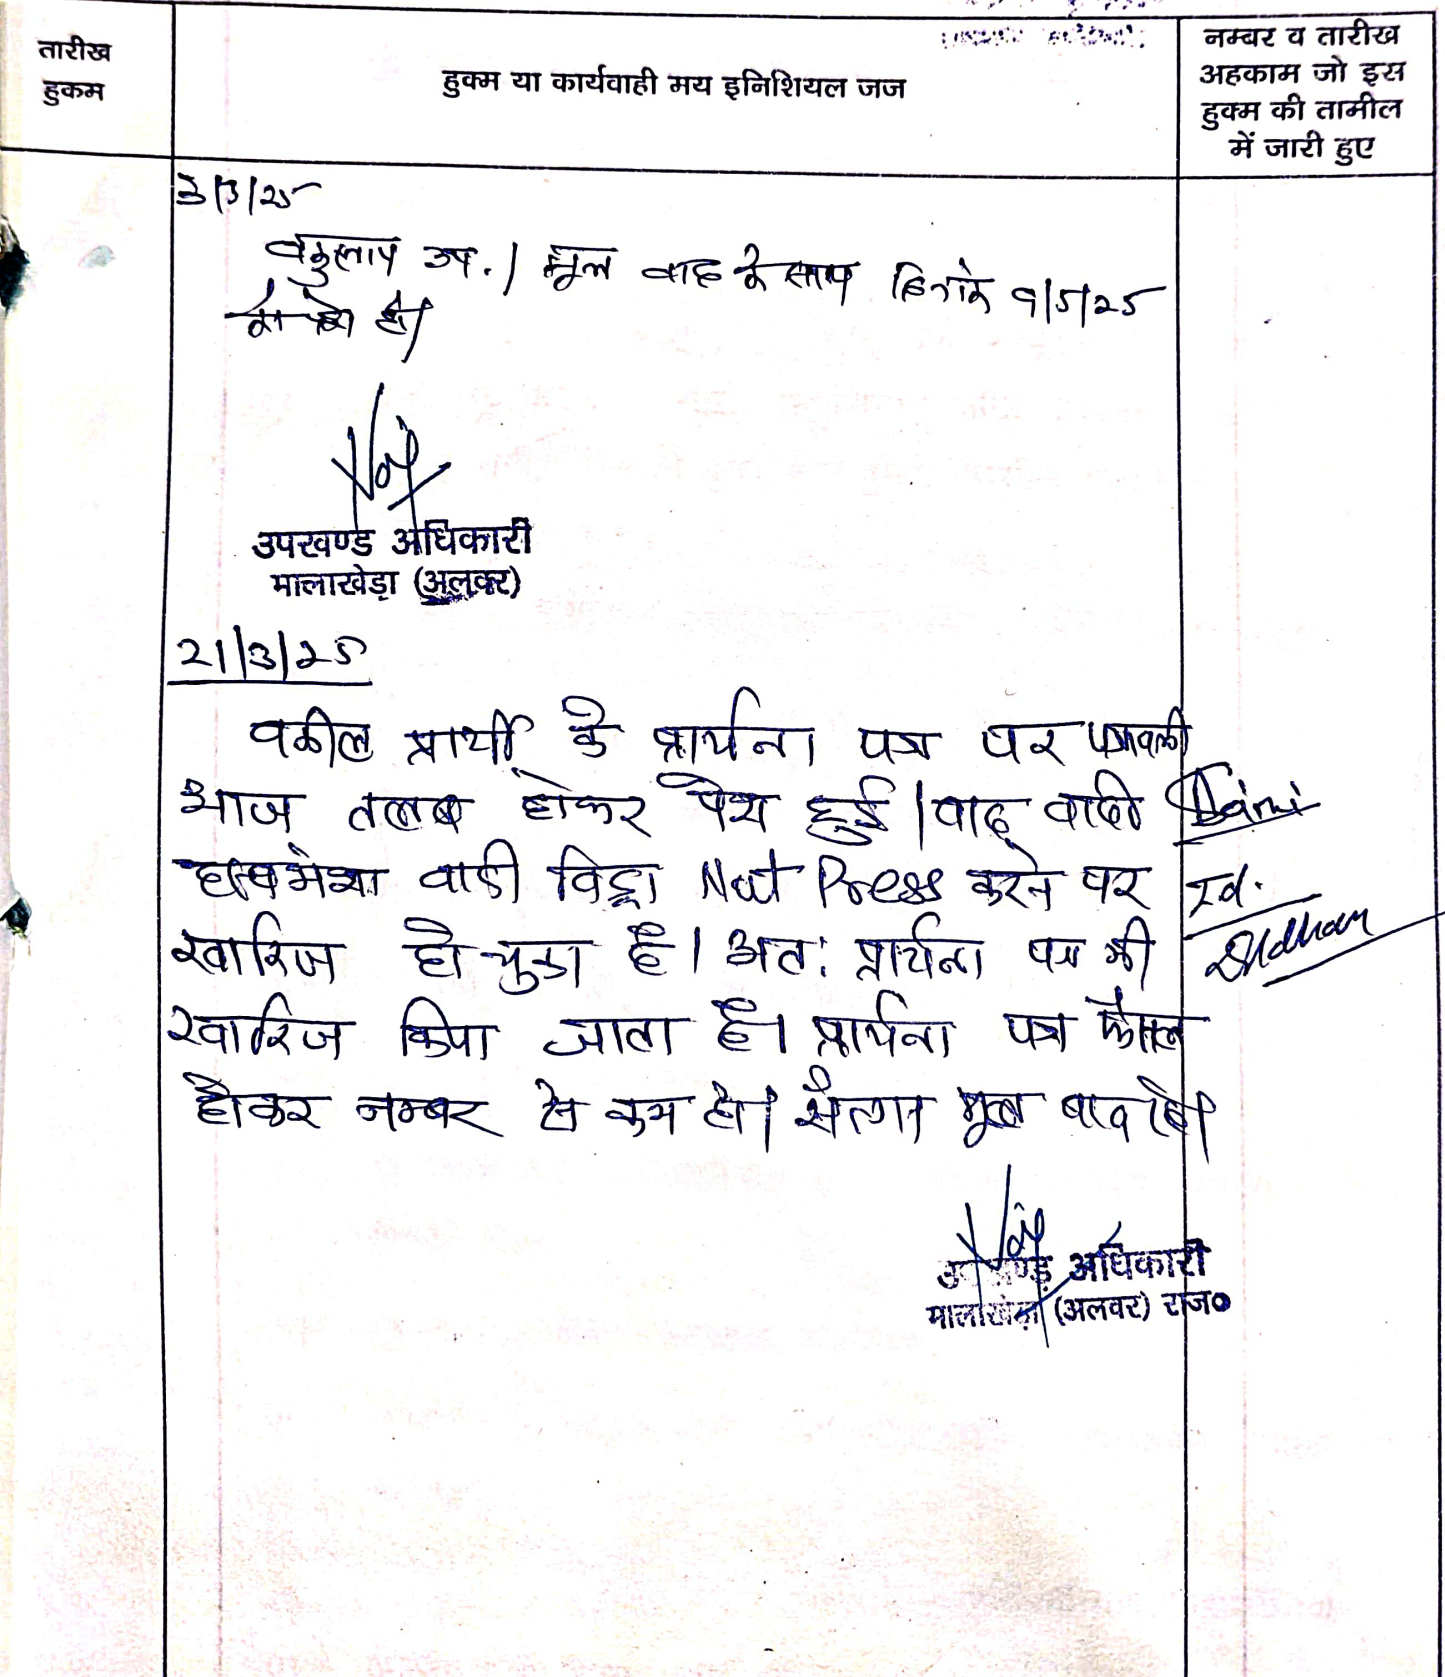 तारीख
हुकम
हुक्म या कार्यवाही मय इनिशियल जज
नम्बर व तारीख
अहकाम जो इस
हुक्म की तामील
में जारी हुए
3/3/25
वकुलाय उप. । मूल वाद के साथ दिनांक 9/5/25
को पेश हो।
उपखण्ड अधिकारी
मालाखेड़ा (अलवर)
21/3/25
वकील प्रार्थी के प्रार्थना पत्र पर पत्रावली
आज तलब होकर पेश हुई। वाद वादी
वादी विड्रा Not Press करने पर
खारिज हो चुका है। अतः प्रार्थना पत्र भी
खारिज किया जाता है। प्रार्थना पत्र फैसल
होकर नम्बर से कम हो। संलग्न मूल वाद रहे।
Id.
उपखण्ड अधिकारी
मालाखेड़ा (अलवर) राज०